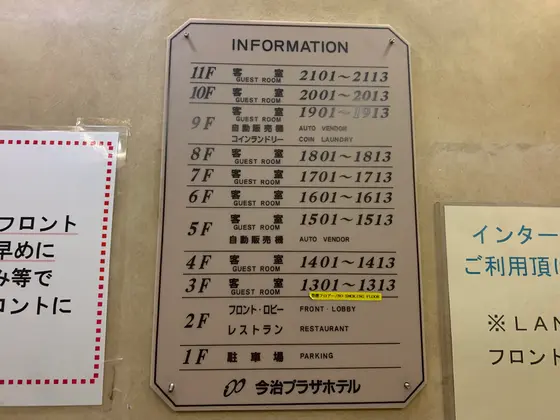 INFORMATION
11F 客室 GUEST ROOM 2101～2113
10F 客室 GUEST ROOM 2001～2013
9F 客室 GUEST ROOM 1901～1913
自動販売機 AUTO VENDOR
コインランドリー COIN LAUNDRY
8F 客室 GUEST ROOM 1801～1813
7F 客室 GUEST ROOM 1701～1713
6F 客室 GUEST ROOM 1601～1613
5F 客室 GUEST ROOM 1501～1513
自動販売機 AUTO VENDOR
4F 客室 GUEST ROOM 1401～1413
3F 客室 GUEST ROOM 1301～1313
2F フロント・ロビー FRONT・LOBBY
レストラン RESTAURANT
1F 駐車場 PARKING
今治プラザホテル
フロント
早めに
み等で
ロントに
インター
ご利用頂け
※LAN
フロント